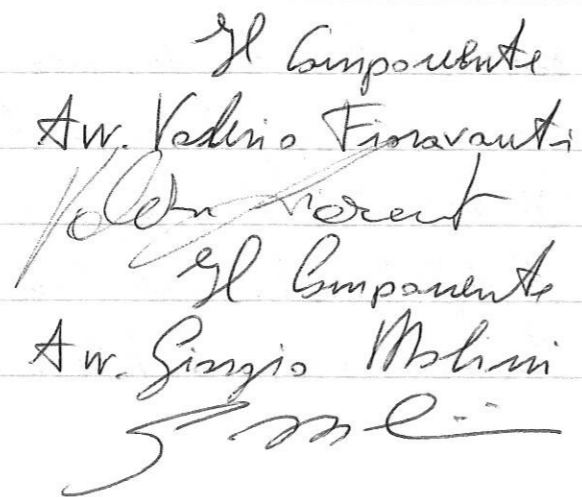 Il Componente
Avv. Valerio Fioravanti
Il Componente
Avv. Giorgio Molini